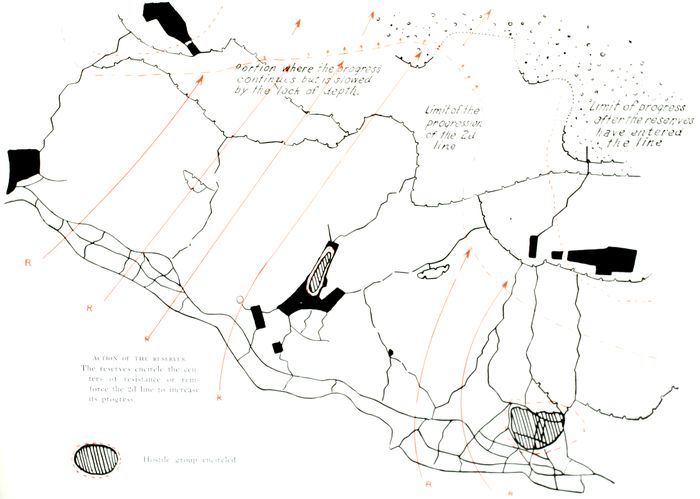 Portion where the progress
continues but is slowed
by the lack of depth.
Limit of the
progression
of the 2d
line
Limit of progress
after the reserves
have entered
the line
R
R
R
R
ACTION OF THE RESERVES
The reserves encircle the cen-
ters of resistance or rein-
force the 2d line to increase
its progress.
Hostile group encircled
R
R